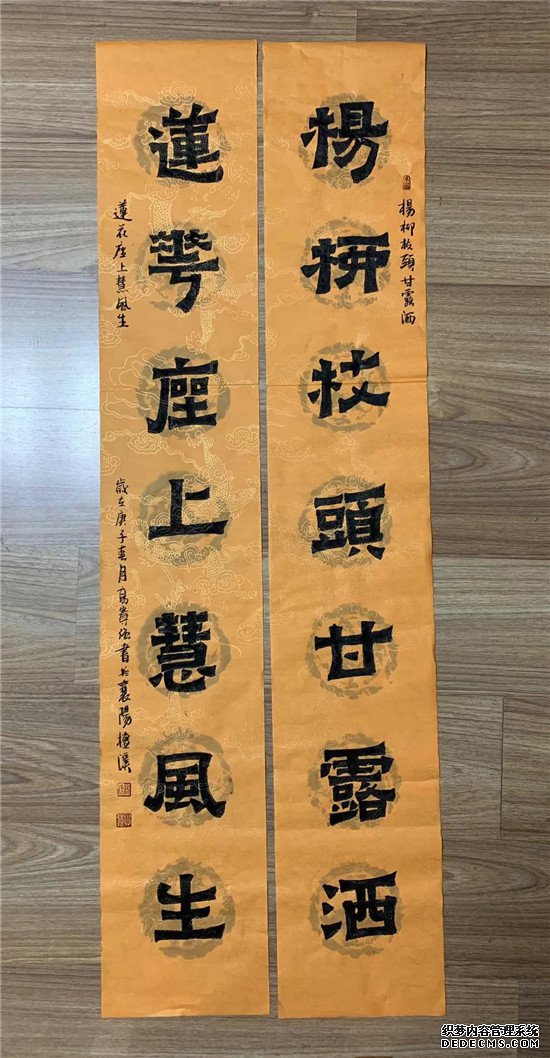 楊柳枝頭甘露洒
楊柳枝頭甘露洒
蓮花座上慧風生
蓮花座上慧風生
歲在庚子春月高書於襄陽檀溪
织梦内容管理系统
DEDECMS.COM